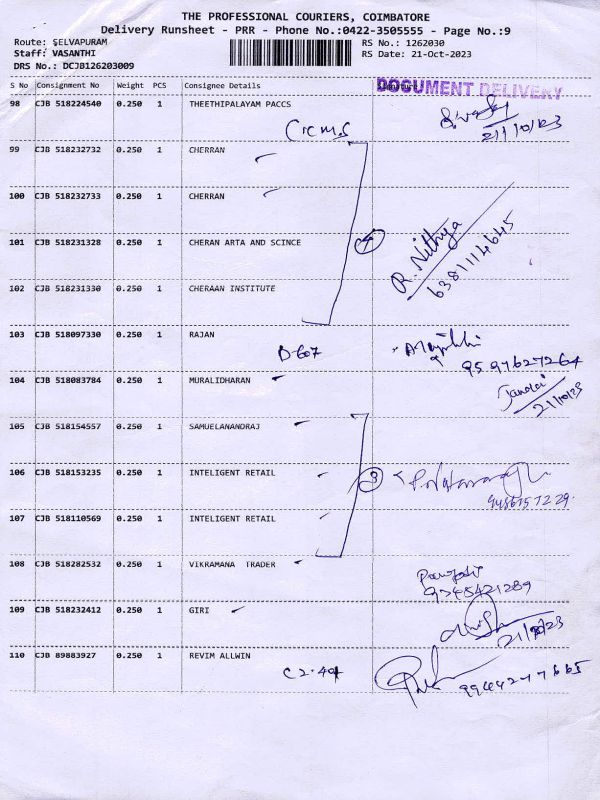 THE PROFESSIONAL COURIERS, COIMBATORE
Delivery Runsheet - PRR - Phone No.:0422-3505555 - Page No.:9
Route: SELVAPURAM RS No.: 1262030
Staff: VASANTHI RS Date: 21-Oct-2023
DRS No.: DCJB126203009
S No Consignment No Weight PCS Consignee Details
DOCUMENT DELIVERY
98 CJB 518224540 0.250 1 THEETHIPALAYAM PACCS
21/10/23
99 CJB 518232732 0.250 1 CHERRAN
100 CJB 518232733 0.250 1 CHERRAN
101 CJB 518231328 0.250 1 CHERAN ARTA AND SCINCE
4 R. Nithya
6381114645
102 CJB 518231330 0.250 1 CHERAAN INSTITUTE
103 CJB 518097330 0.250 1 RAJAN
B-607
9597627264
104 CJB 518083784 0.250 1 MURALIDHARAN
21/10/23
105 CJB 518154557 0.250 1 SAMUELANANDRAJ
106 CJB 518153235 0.250 1 INTELIGENT RETAIL
3
107 CJB 518110569 0.250 1 INTELIGENT RETAIL
108 CJB 518282532 0.250 1 VIKRAMANA TRADER
109 CJB 518232412 0.250 1 GIRI
110 CJB 89883927 0.250 1 REVIM ALLWIN
C2-401